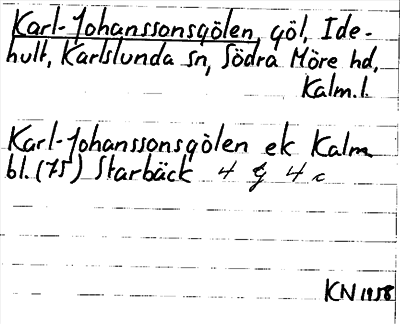 Karl-Johanssonsgölen, göl, Ide-
hult, Karlslunda sn, Södra Möre hd,
Kalm.l.
Karl-Johanssonsgölen ek Kalm
bl. (75) Starbäck 4 g 4 c
KN 1958